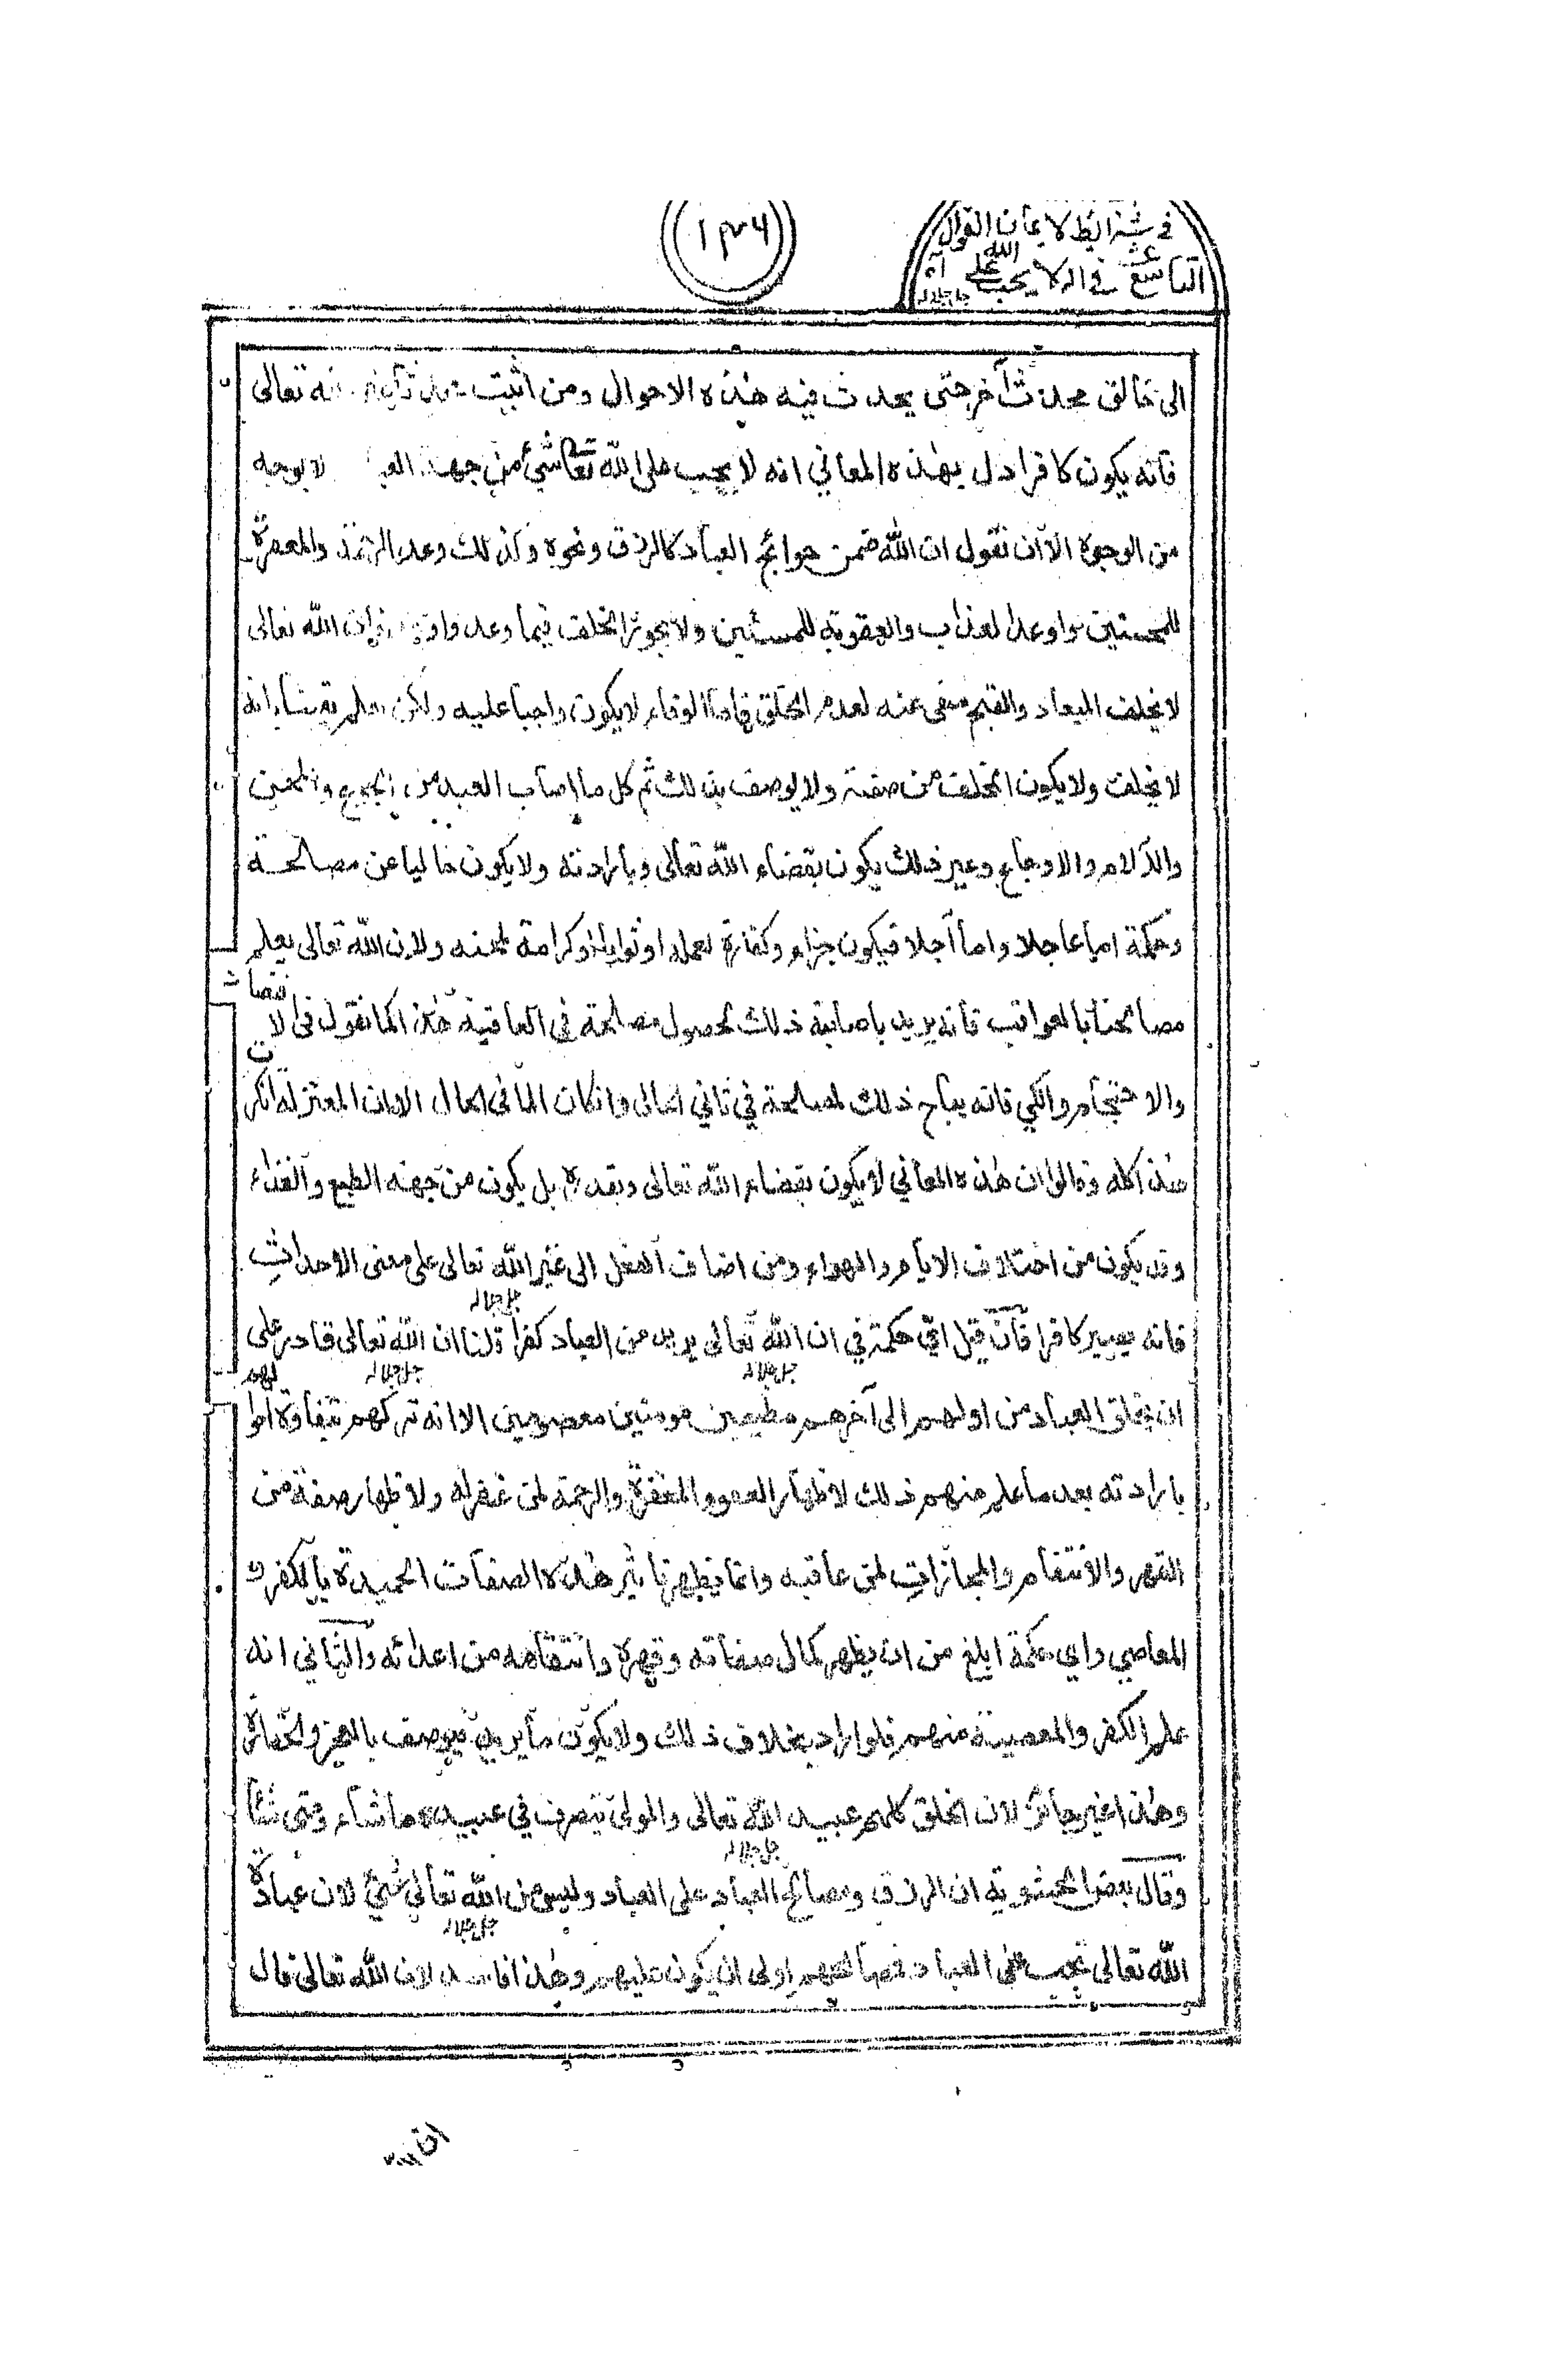 في شرائط الايمان القول
التاسع عشر في انه لا يجب على الله
جل جلاله
۱۳۶
الى خالق محدث آخر حتى يحدث فيه هذه الاحوال ومن اثبت تعالى
فانه يكون كافرا دل بهذه المعاني انه لا يجب على الله تعالى شئ من جهة لا بوجه
من الوجوه الا ان نقول ان الله ضمن حوائج العباد كالرزق ونحوه وكذلك وعد الرحمة والمغفرة
للمحسنين واوعد العذاب والعقوبة للمسئين ولا يجوز الخلف فيما وعد فان الله تعالى
لا يخلف الميعاد والقبح منفى عنه لعدم الوفاء لا يكون واجبا عليه ولكن انه
لا يخلف ولا يكون الخلف من صفته ولا يوصف بذلك ثم كل ما اصاب العبد من الجوع والمحن
والآلام والاوجاع وغير ذلك يكون بقضاء الله تعالى وبارادته ولا يكون خاليا عن مصالحة
وحكمة اما عاجلا واما آجلا فيكون جزاء وكفارة لعمله او ثوابا او كرامة لمحنه ولان الله تعالى يعلم
مصالحنا بالعواقب فانه يريد باصابة ذلك لحصول مصلحة في العاقبة هذا كما نقول في الافتصاد
والاحتجام والكي فانه يباح ذلك لمصلحة في ثاني الحال وان كان الما في الحال الا ان المعتزلة انكرت
هذا كله وقالوا ان هذه المعاني لا يكون بقضاء الله تعالى وبقدره بل يكون من جهة الطبع والغذاء
وقد يكون من اختلاف الايام والهواء ومن اضاف الفعل الى غير الله تعالى على معنى الاحداث
جل جلاله
فانه يصير كافرا فان قيل اي حكمة في ان الله تعالى يريد من العباد كفرا قلنا ان الله تعالى قادر على
جل جلاله جل جلاله
ان يخلق العباد من اولهم الى آخرهم مطيعين مومنين معصومين الا انه تركهم بتفاوة احوالهم
بارادته بعد ما علم منهم ذلك لاظهار العفو والمغفرة والرحمة لمن غفر له ولاظهار صفة من
القهر والانتقام والمجازات لمن عاقبه وانما يظهر تاثير هذه الصفات الحميدة بالكفر و
المعاصي واي حكمة ابلغ من ان يظهر كمال صفاته وقهره وانتقامه من اعدائه والثاني انه
علم الكفر والمعصية منهم فلو اراد بخلاف ذلك ولا يكون ما يريد فيوصف بالعجز والحقارة
وهذا غير جائز لان الخلق كلهم عبيد الله تعالى والمولى يتصرف في عبيده ما شاء ومتى شاء
جل جلاله
وقال بعض الحشوية ان الرزق ومصالح العباد على العباد وليس من الله تعالى شئ لان عبادة
جل جلاله
الله تعالى تجب على العباد فمصالحهم اولى ان يكون عليهم وهذا فاسد لان الله تعالى قال